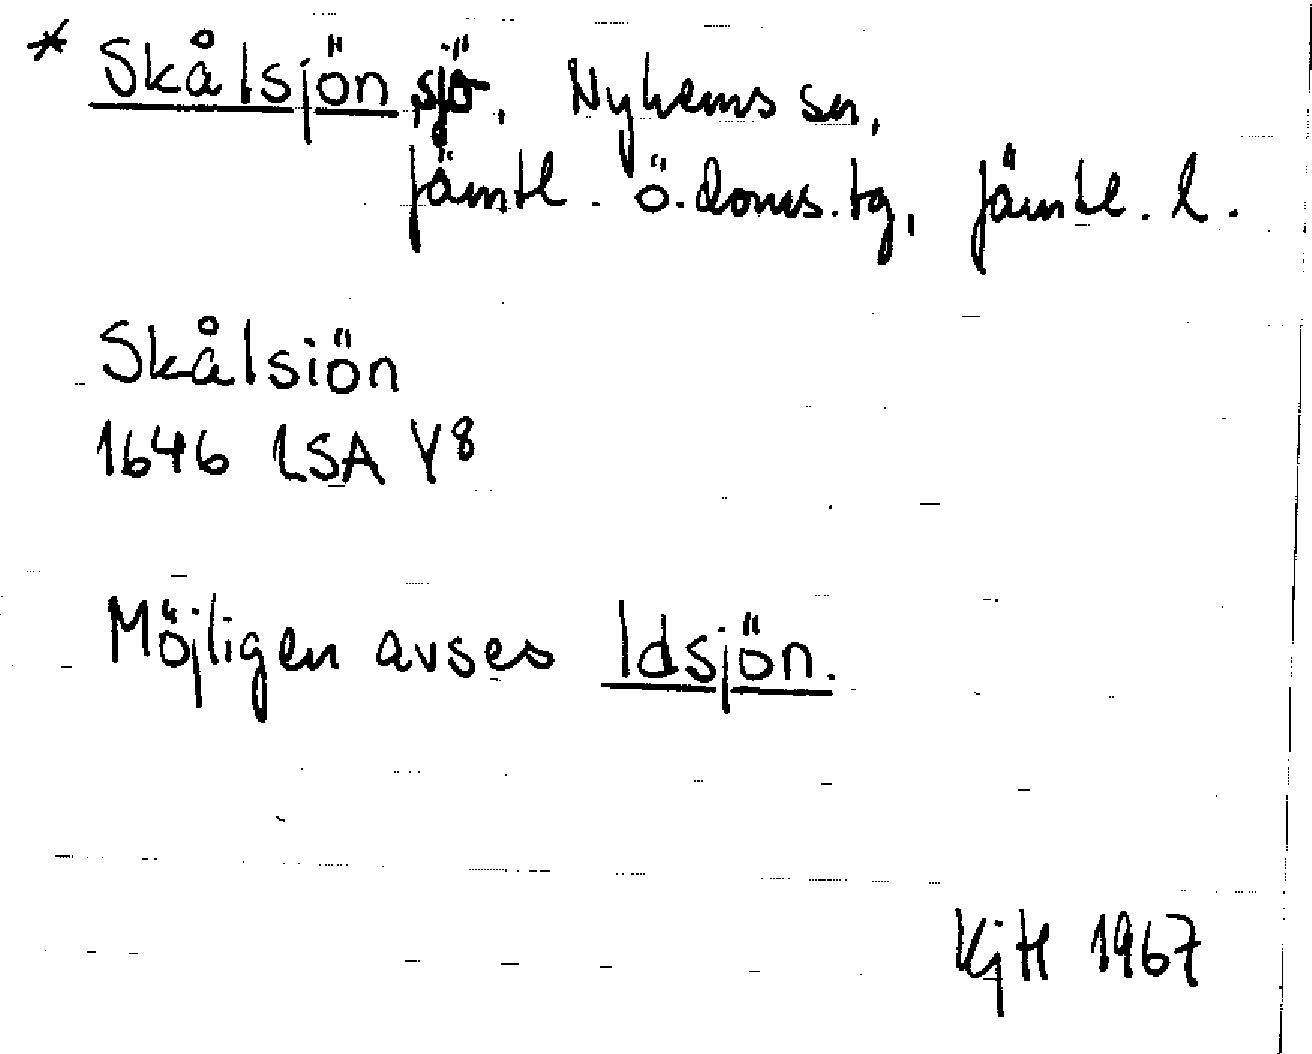 * Skålsjön sjö, Nyhems sn,
Jämtl. ö. doms. tg, Jämtl. l.
Skålsiön
1646 LSA Y8
Möjligen avses Idsjön.
KjH 1967